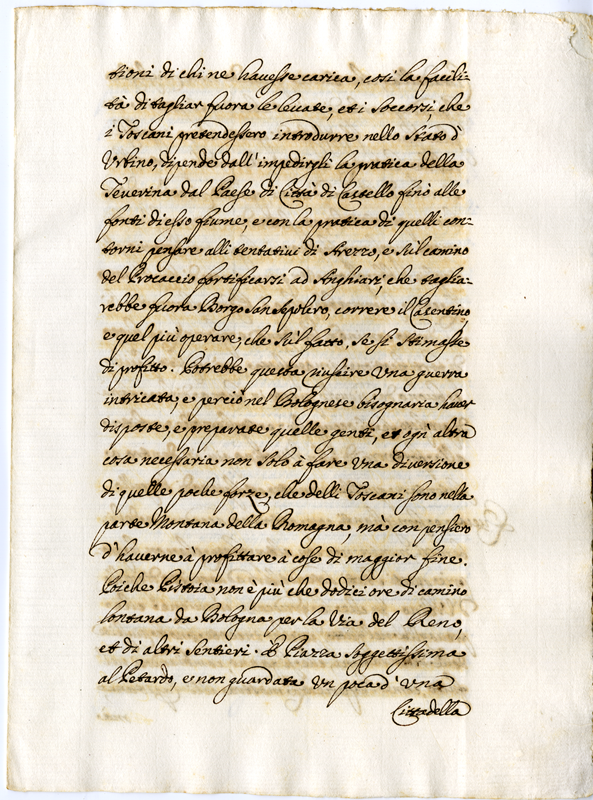 tioni di chi ne havesse carica, così la facili=
tà di tagliar fuora le levate, et i soccorsi, che
i Toscani pretendessero introdurre nello Stato d'
Urbino, dipende dall'impedirgli la pratica della
Teverina dal Paese di Città di Castello fino alle
fonti di esso fiume, e con la pratica di quelli con=
torni pensare alli tentativi di Arezzo, e sul camino
del Procaccio fortificarsi ad Anghiari, che taglia=
rebbe fuora Borgo San Sepolcro, correre il Casentino,
e quel più operare, che sù'l fatto, se si stimasse
di profitto. Potrebbe questa riuscire una guerra
intricata, e perciò nel Bolognese bisognaria haver
disposte, e preparate quelle genti, et ogn'altra
cosa necessaria non solo à fare una diversione
di quelle poche forze, che delli Toscani sono nella
parte Montana della Romagna, mà con pensiero
d'haverne à profittare à cose di maggior fine.
Poiche Pistoia non è più che dodici ore di camino
lontana da Bologna per la Via del Reno,
et di altri sentieri. È Piazza soggettissima
al Petardo, e non guardata un poca d'una
Cittadella